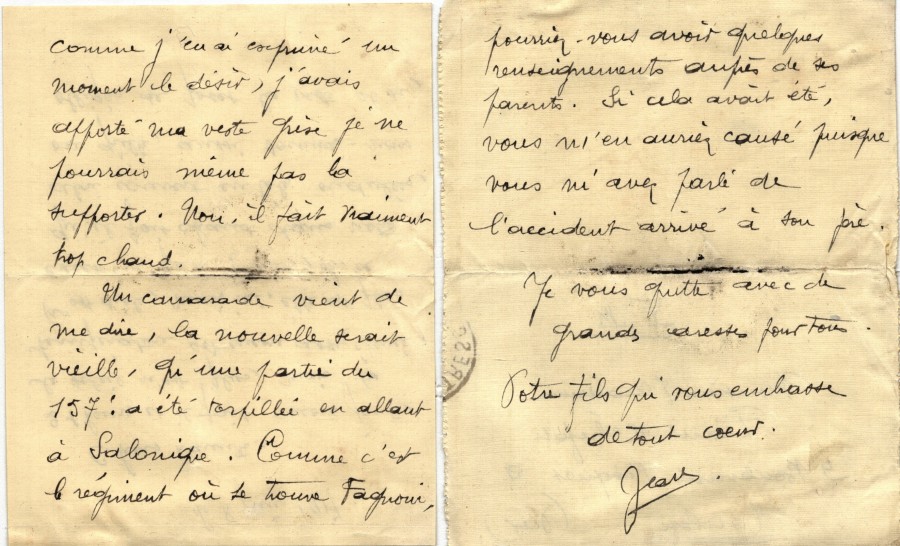 comme j'en ai exprimé un
moment le désir, j'avais
apporté ma veste grise je ne
pourrais même pas la
supporter. Non, il fait vraiment
trop chaud.
Un camarade vient de
me dire, la nouvelle serait
vieille, qu'une partie du
157e a été torpillée en allant
à Salonique. Comme c'est
le régiment où se trouve
pourriez-vous avoir quelques
renseignements auprès de ses
parents. Si cela avait été,
vous m'en auriez causé puisque
vous m'avez parlé de
l'accident arrivé à son père.
Je vous quitte avec de
grandes caresses pour tous.
Votre fils qui vous embrasse
de tout coeur.
Jean.
TRÉSO